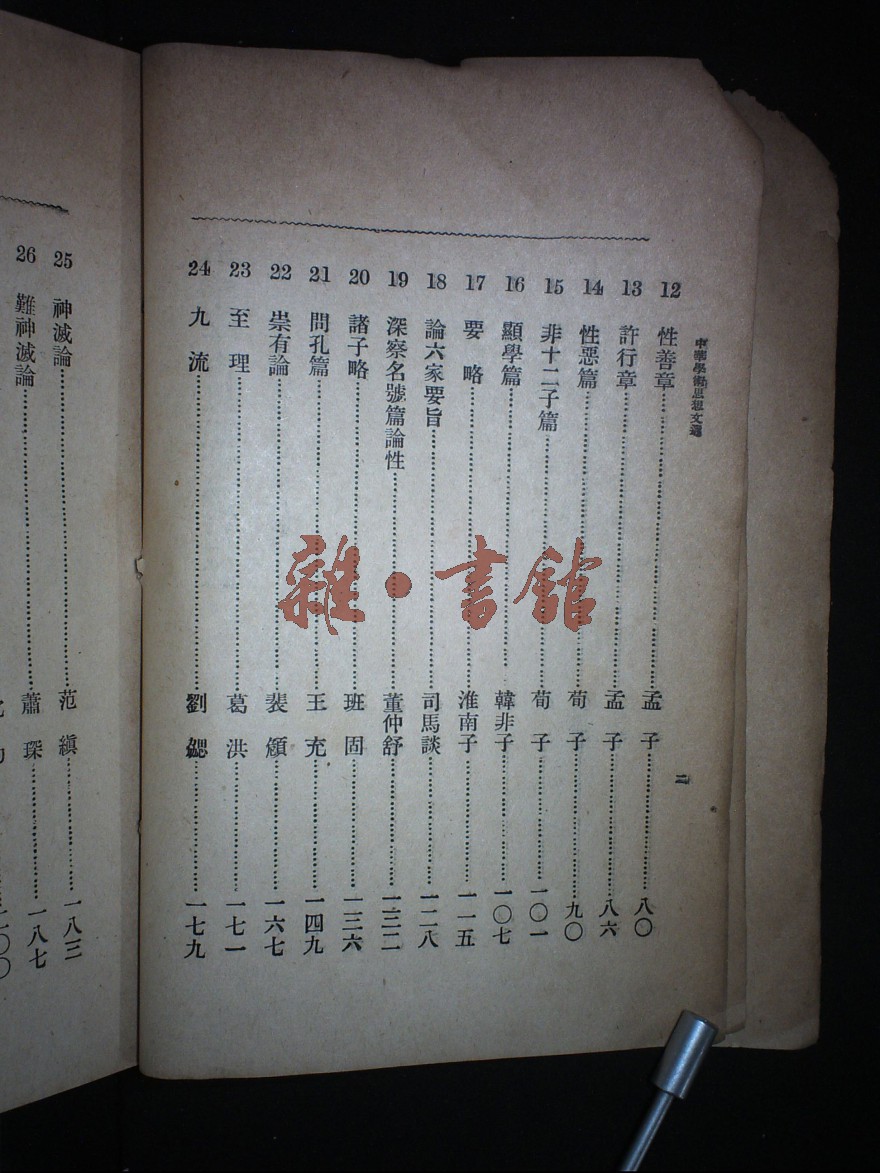 中華學術思想文選
二
12 性善章……孟子……八〇
13 許行章……孟子……八六
14 性惡篇……荀子……九〇
15 非十二子篇……荀子……一〇一
16 顯學篇……韓非子……一〇七
17 要略……淮南子……一一五
18 論六家要旨……司馬談……一二八
19 深察名號篇論性……董仲舒……一三二
20 諸子略……班固……一三六
21 問孔篇……王充……一四九
22 崇有論……裴頠……一六七
23 至理……葛洪……一七一
24 九流……劉勰……一七九
25 神滅論……范縝……一八三
26 難神滅論……蕭琛……一八七
雜·書館